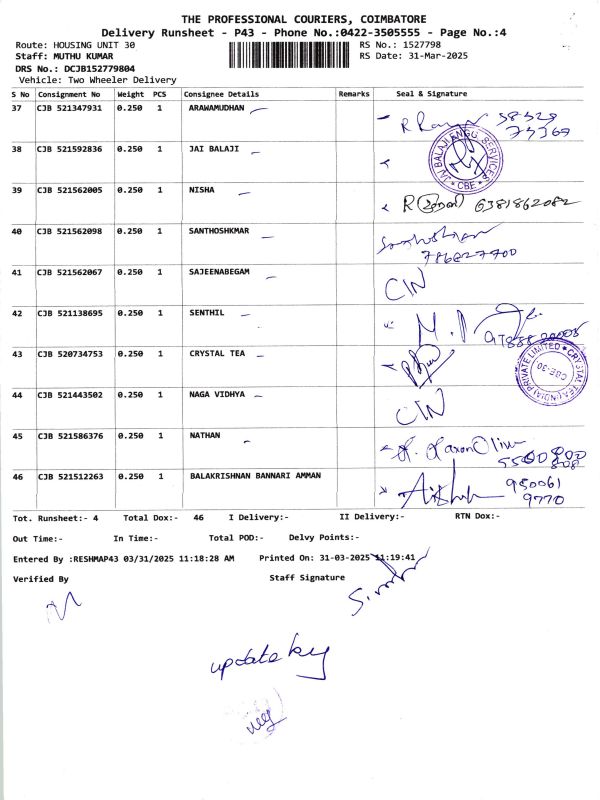 THE PROFESSIONAL COURIERS, COIMBATORE
Delivery Runsheet - P43 - Phone No.:0422-3505555 - Page No.:4
Route: HOUSING UNIT 30 RS No.: 1527798
Staff: MUTHU KUMAR RS Date: 31-Mar-2025
DRS No.: DCJB152779804
Vehicle: Two Wheeler Delivery
S No Consignment No Weight PCS Consignee Details Remarks Seal & Signature
37 CJB 521347931 0.250 1 ARAWAMUDHAN
38 CJB 521592836 0.250 1 JAI BALAJI JAI BALAJI ENGG SERVICES CBE
39 CJB 521562005 0.250 1 NISHA 6381862082
40 CJB 521562098 0.250 1 SANTHOSHKMAR
41 CJB 521562067 0.250 1 SAJEENABEGAM C/N
42 CJB 521138695 0.250 1 SENTHIL
43 CJB 520734753 0.250 1 CRYSTAL TEA CRYSTAL TEA (INDIA) PRIVATE LIMITED CBE-30
44 CJB 521443502 0.250 1 NAGA VIDHYA C/N
45 CJB 521586376 0.250 1 NATHAN
46 CJB 521512263 0.250 1 BALAKRISHNAN BANNARI AMMAN 980061
9770
Tot. Runsheet:- 4 Total Dox:- 46 I Delivery:- II Delivery:- RTN Dox:-
Out Time:- In Time:- Total POD:- Delvy Points:-
Entered By :RESHMAP43 03/31/2025 11:18:28 AM Printed On: 31-03-2025 11:19:41
Verified By Staff Signature
update by